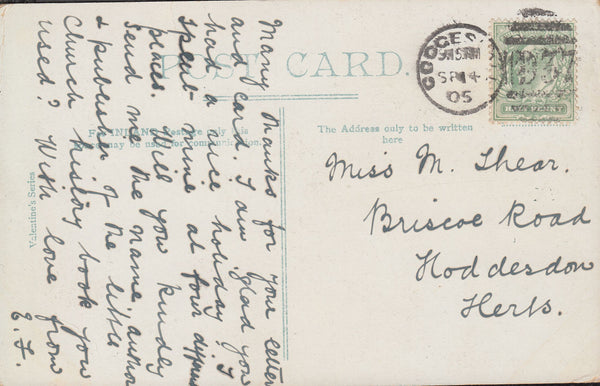 POST CARD.
FOR INLAND Postage only this
Space may be used for communication.
The Address only to be written
here
Valentine's Series
Many thanks for your letter
and card. I am glad you
had a nice holiday. I
spent mine at four different
places. Will you kindly
send me the name, author
& publisher of the little
Church history book you
used? With love from
E. F.
Miss M. Shear.
Briscoe Road
Hoddesdon
Herts.
SP 14
05
HALFPENNY